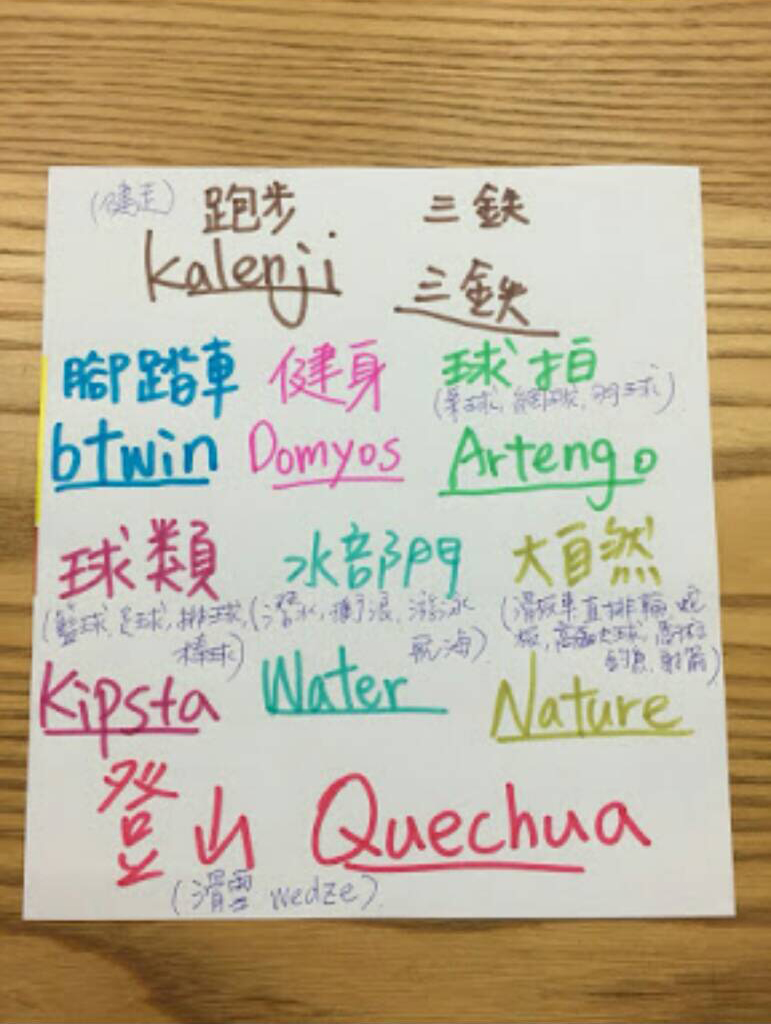 (健走) 跑步 三鉄
kalenji 三鉄
腳踏車 健身 球拍
(桌球, 網球, 羽球)
btwin Domyos Artengo
球類 水部門 大自然
(籃球, 足球, 排球, (潛水, 衝浪, 游泳 (滑板車直排輪 蛇
棒球) 航海) 板, 高爾夫球, 馬術
釣魚, 射箭)
Kipsta Water Nature
登山 Quechua
(滑雪 wedze)